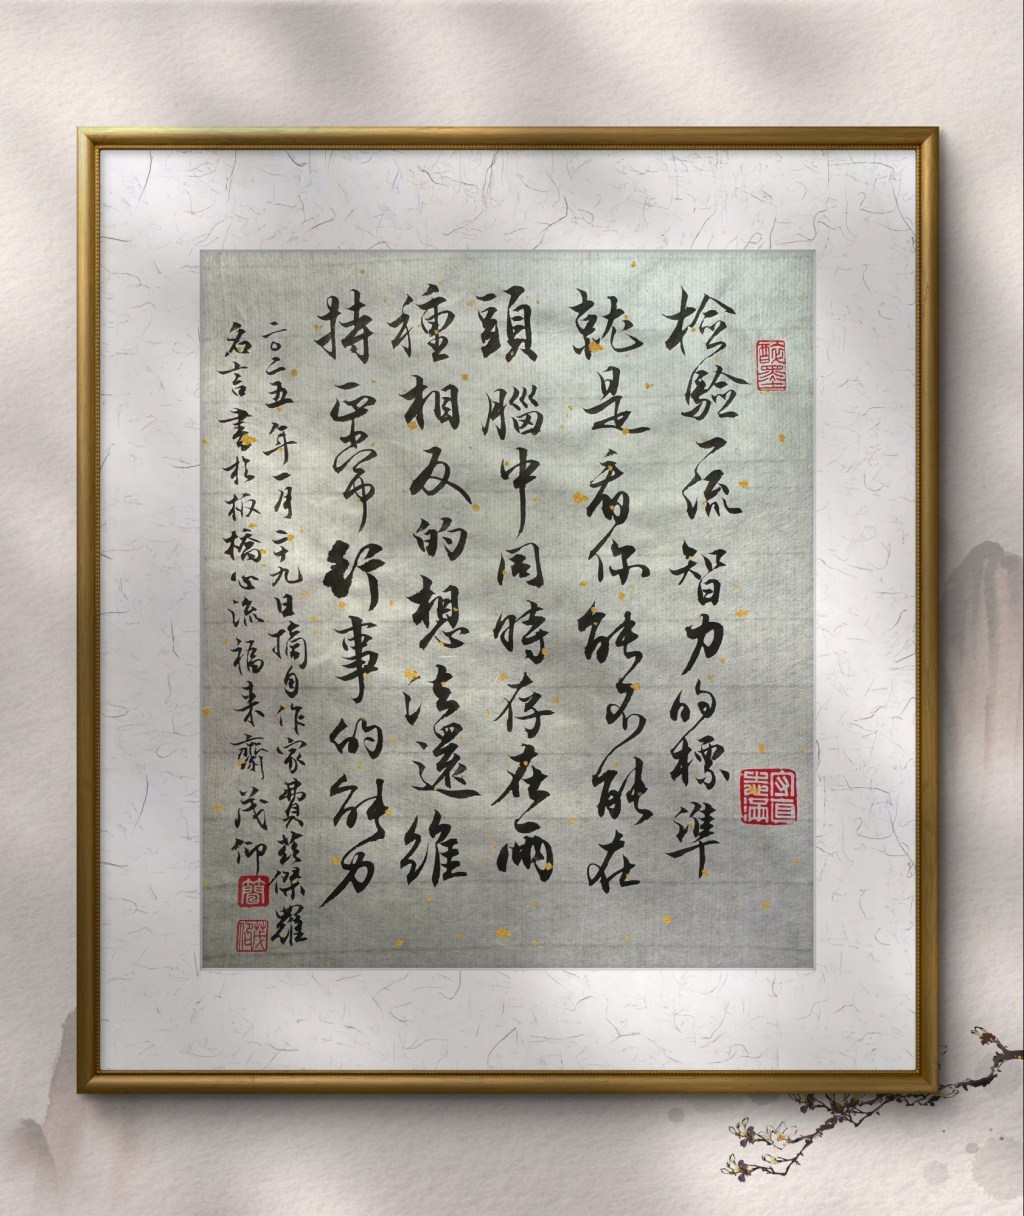 檢驗一流智力的標準
就是看你能不能在
頭腦中同時存在兩
種相反的想法還維
持正常行事的能力
二〇二五年一月二十九日摘自作家費茲傑羅
名言書於板橋心流福来齋茂仰